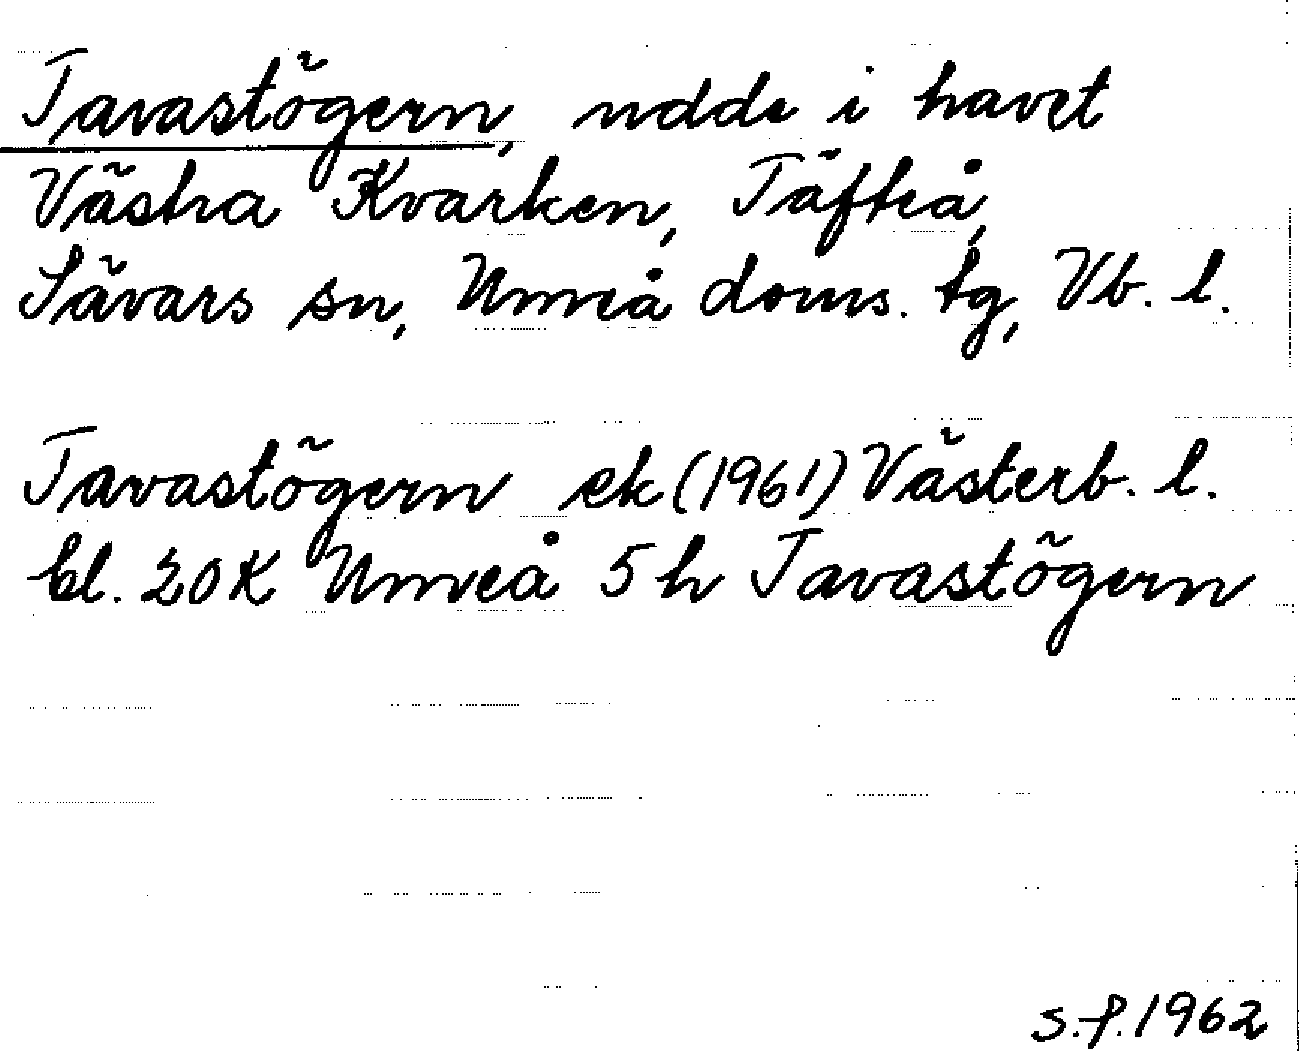 Tavastögern, udde i havet
Västra Kvarken, Täfteå,
Sävars sn, Umeå doms. tg, Vb. l.
Tavastögern ek (1961) Västerb. l.
bl. 20K Umeå 5 h Tavastögern
s.f. 1962